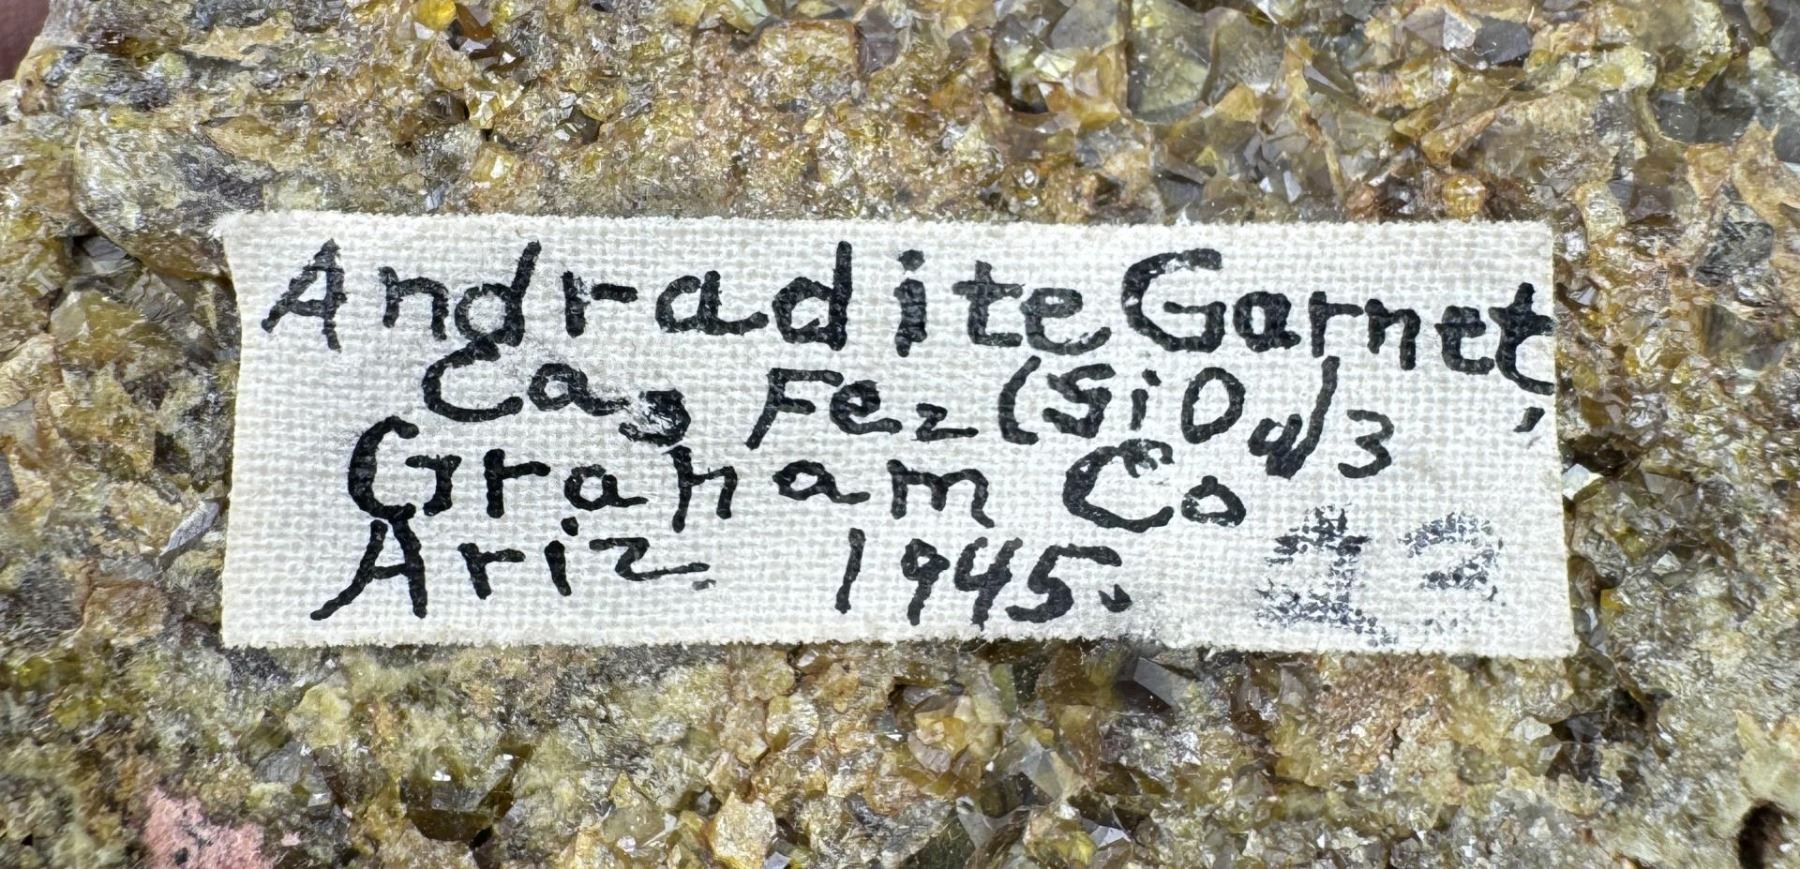 Andradite Garnet,
Ca3 Fe2 (SiO4)3
Graham Co
Ariz. 1945.